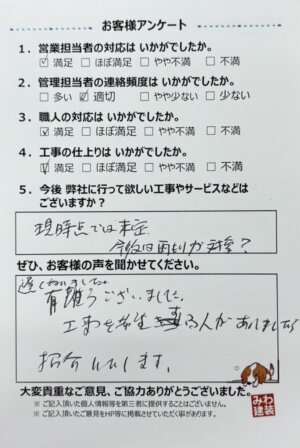 お客様アンケート
1. 営業担当者の対応は いかがでしたか。
☑ 満足 □ ほぼ満足 □ やや不満 □ 不満
2. 管理担当者の連絡頻度は いかがでしたか。
□ 多い ☑ 適切 □ やや少ない □ 少ない
3. 職人の対応は いかがでしたか。
☑ 満足 □ ほぼ満足 □ やや不満 □ 不満
4. 工事の仕上りは いかがでしたか。
☑ 満足 □ ほぼ満足 □ やや不満 □ 不満
5. 今後 弊社に行って欲しい工事やサービスなどは
ございますか?
現時点では未定
今後は雨どいが
ぜひ、お客様の声を聞かせてください。
有難うございました。
工事を希望する人がありましたら
紹介いたします。
大変貴重なご意見、ご協力ありがとうございました。
※ ご記入頂いた個人情報等を第三者に提供することはございません。
※ ご記入頂いたご意見をHP等に掲載させていただく事があります。
みわ
建装